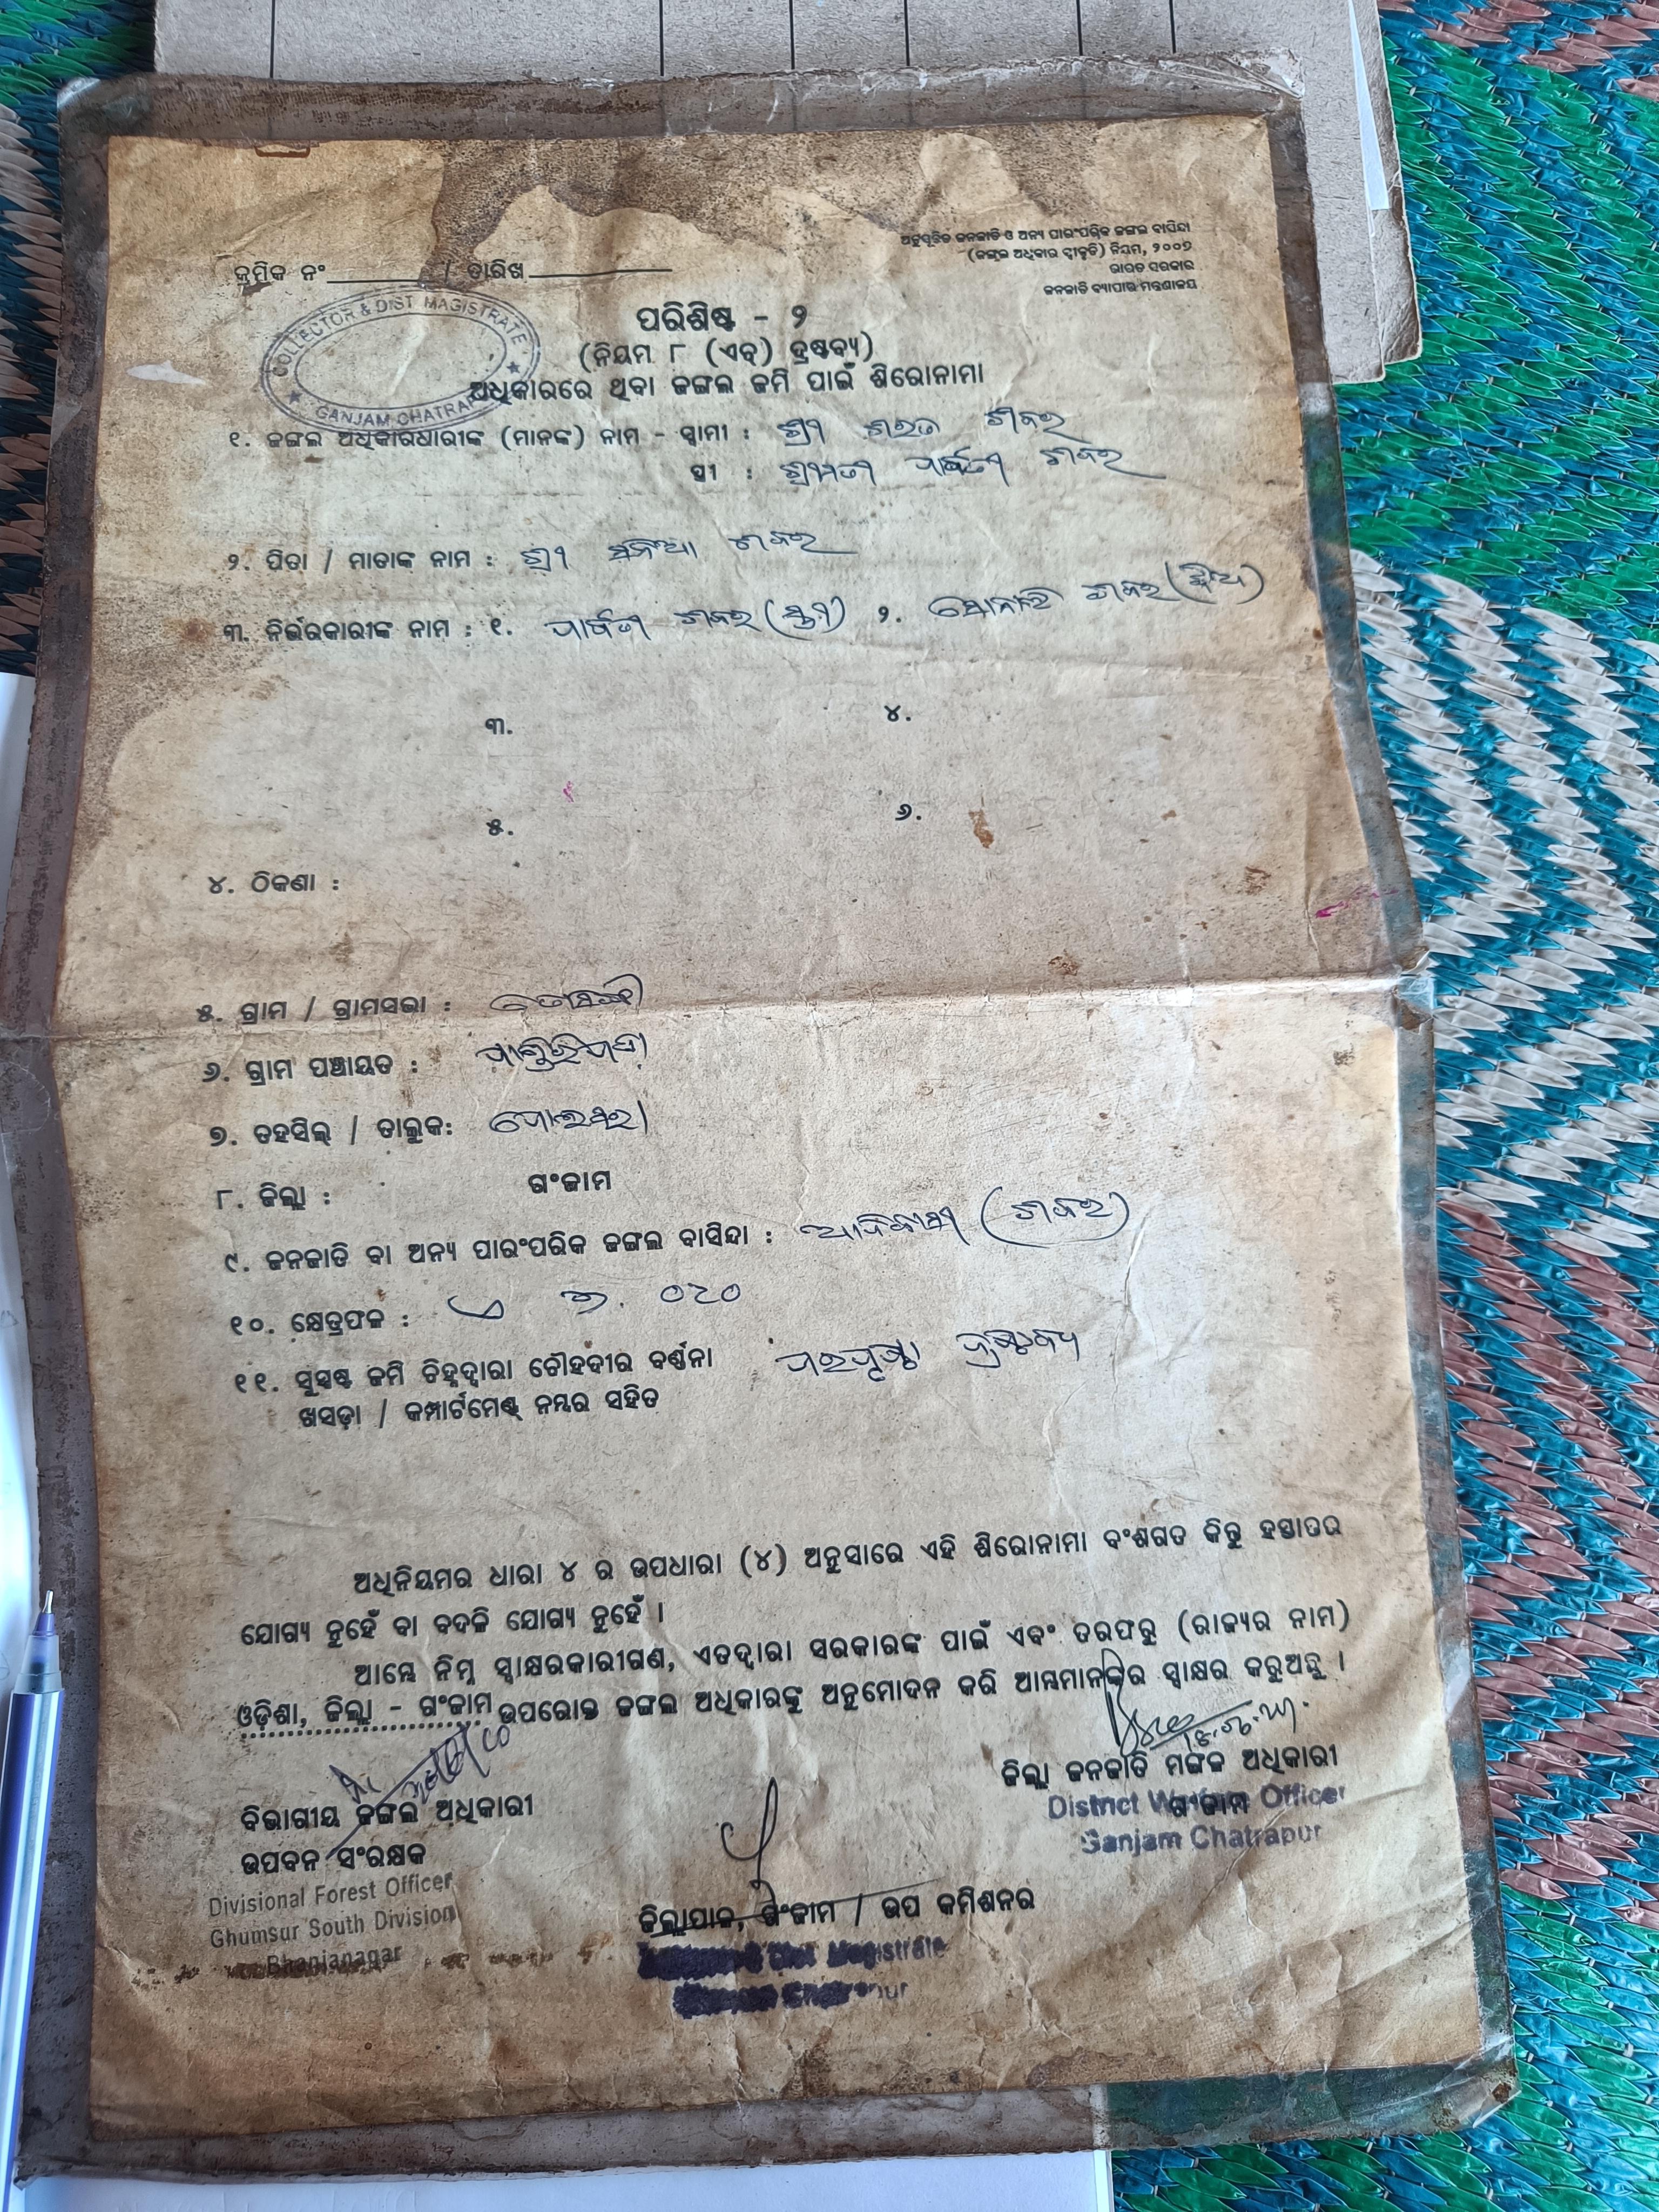 ଅନୁସୂଚିତ ଜନଜାତି ଓ ଅନ୍ୟ ପାରଂପରିକ ଜଙ୍ଗଲ ବାସିନ୍ଦା
(ଜଙ୍ଗଲ ଅଧିକାର ସ୍ୱୀକୃତି) ନିୟମ, ୨୦୦୭
ଭାରତ ସରକାର
ଜନଜାତି ବ୍ୟାପାର ମନ୍ତ୍ରଣାଳୟ
କ୍ରମିକ ନଂ / ତାରିଖ
COLLECTOR & DIST MAGISTRATE
GANJAM CHATRAP
ପରିଶିଷ୍ଟ - ୨
(ନିୟମ ୮ (ଏଚ୍) ଦ୍ରଷ୍ଟବ୍ୟ)
ଅଧିକାରରେ ଥିବା ଜଙ୍ଗଲ ଜମି ପାଇଁ ଶିରୋନାମା
୧. ଜଙ୍ଗଲ ଅଧିକାରଧାରୀଙ୍କ (ମାନଙ୍କ) ନାମ - ସ୍ୱାମୀ : ଶ୍ରୀ ଶରତ ଶବର
ସ୍ତ୍ରୀ : ଶ୍ରୀମତୀ ପାର୍ବତୀ ଶବର
୨. ପିତା / ମାତାଙ୍କ ନାମ : ଶ୍ରୀ ଶବର
୩. ନିର୍ଭରକାରୀଙ୍କ ନାମ : ୧. ପାର୍ବତୀ ଶବର (ସ୍ତ୍ରୀ) ୨. ସୋନାଲି ଶବର (ଝିଅ)
୩. ୪.
୫. ୬.
୪. ଠିକଣା :
୫. ଗ୍ରାମ / ଗ୍ରାମସଭା :
୬. ଗ୍ରାମ ପଞ୍ଚାୟତ :
୭. ତହସିଲ୍ / ତାଲୁକ: ପୋଲସରା
୮. ଜିଲ୍ଲା : ଗଂଜାମ
୯. ଜନଜାତି ବା ଅନ୍ୟ ପାରଂପରିକ ଜଙ୍ଗଲ ବାସିନ୍ଦା : ଆଦିବାସୀ (ଶବର)
୧୦. କ୍ଷେତ୍ରଫଳ :
୧୧. ସୁସ୍ପଷ୍ଟ ଜମି ଚିହ୍ନଦ୍ୱାରା ଚୌହଦୀର ବର୍ଣ୍ଣନା ପରପୃଷ୍ଠା ଦ୍ରଷ୍ଟବ୍ୟ
ଖସଡ଼ା / କମ୍ପାର୍ଟମେଣ୍ଟ୍ ନମ୍ବର ସହିତ
ଅଧିନିୟମର ଧାରା ୪ ର ଉପଧାରା (୪) ଅନୁସାରେ ଏହି ଶିରୋନାମା ବଂଶଗତ କିନ୍ତୁ ହସ୍ତାନ୍ତର
ଯୋଗ୍ୟ ନୁହେଁ ବା ବଦଳି ଯୋଗ୍ୟ ନୁହେଁ ।
ଆମ୍ଭେ ନିମ୍ନ ସ୍ୱାକ୍ଷରକାରୀଗଣ, ଏତଦ୍ୱାରା ସରକାରଙ୍କ ପାଇଁ ଏବଂ ତରଫରୁ (ରାଜ୍ୟର ନାମ)
ଓଡ଼ିଶା, ଜିଲ୍ଲା - ଗଂଜାମ ଉପରୋକ୍ତ ଜଙ୍ଗଲ ଅଧିକାରଙ୍କୁ ଅନୁମୋଦନ କରି ଆମ୍ଭମାନଙ୍କର ସ୍ୱାକ୍ଷର କରୁଅଛୁ ।
ଜିଲ୍ଲା ଜନଜାତି ମଙ୍ଗଳ ଅଧିକାରୀ
ଗଂଜାମ
District Welfare Officer
Ganjam Chatrapur
ବିଭାଗୀୟ ଜଙ୍ଗଲ ଅଧିକାରୀ
ଉପବନ ସଂରକ୍ଷକ
Divisional Forest Officer
Ghumsur South Division
Bhanjanagar
ଜିଲ୍ଲାପାଳ, ଗଂଜାମ / ଉପ କମିଶନର
Magistrate